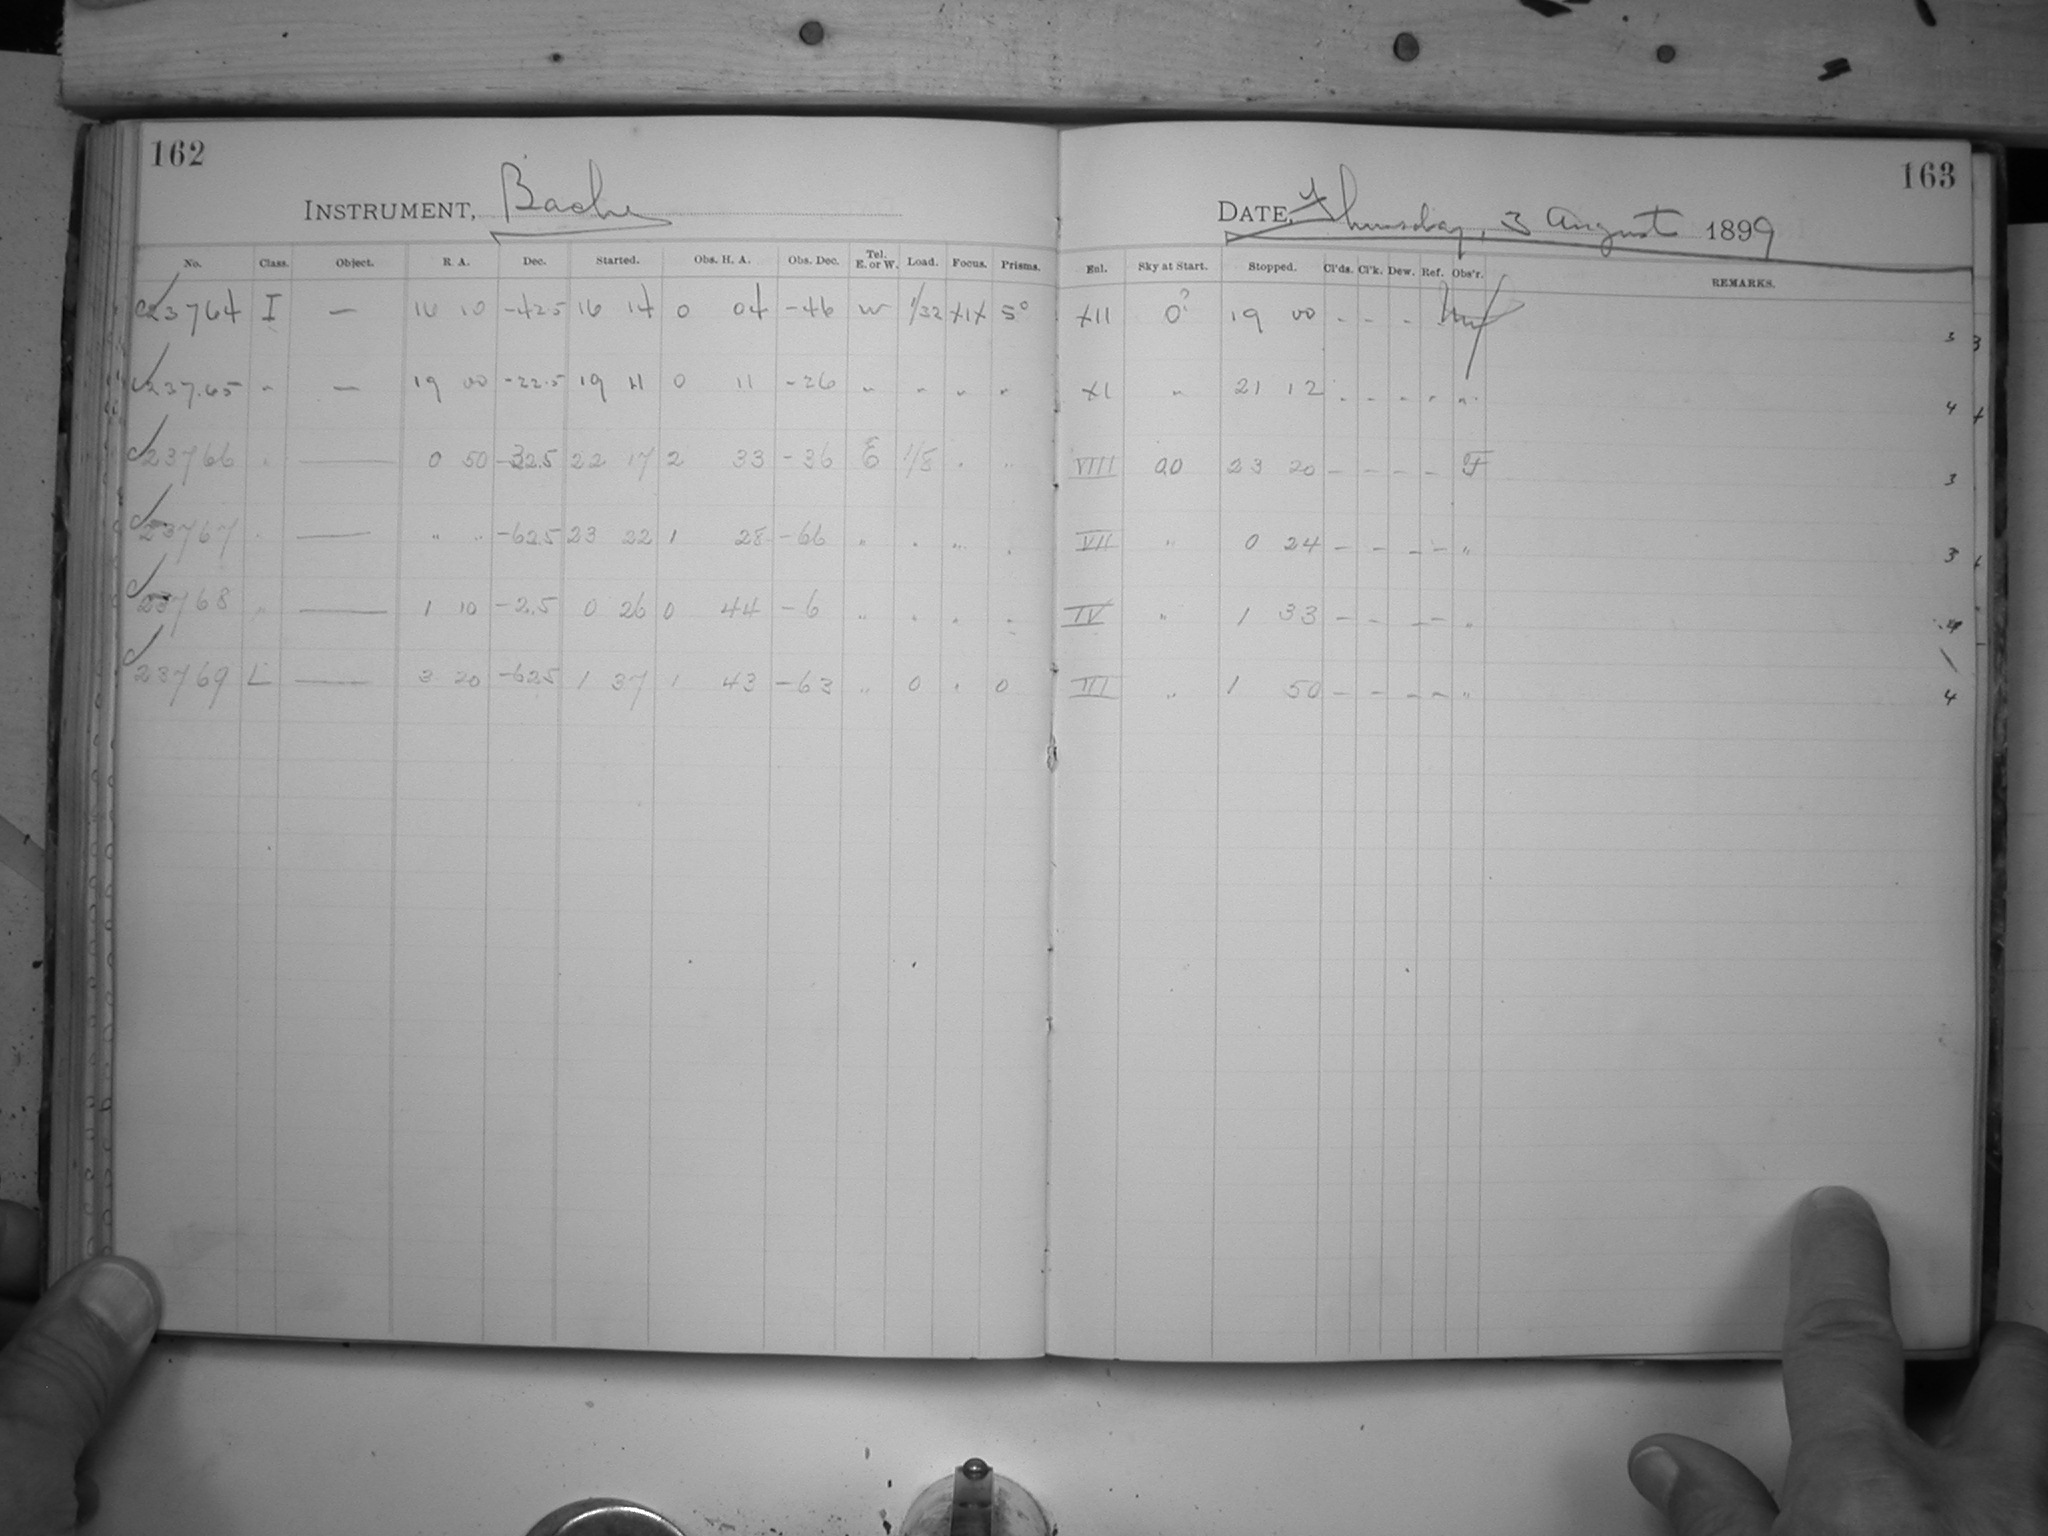 162
INSTRUMENT, Bache
No. Class. Object. R. A. Dec. Started. Obs. H. A. Obs. Dec. Tel. E. or W. Load. Focus. Prisms.
23764 I — 16 10 -42.5 16 14 0 04 -46 W 1/32 XIX 5°
23765 " — 19 00 -22.5 19 11 0 11 -26 " " " "
23766 " — 0 50 -32.5 22 17 2 33 -36 E 1/8 " "
23767 " — " " -62.5 23 22 1 28 -66 " " " "
23768 " — 1 10 -2.5 0 26 0 44 -6 " " " "
23769 L — 3 20 -62.5 1 37 1 43 -63 " 0 " 0
163
DATE, Thursday, 3 August 1899
Enl. Sky at Start. Stopped. Cl'ds. Cl'k. Dew. Ref. Obs'r. REMARKS.
XII 0? 19 00 - - - 3
XI " 21 12 - - - " " 4
VIII 00 23 20 – – – – F 3
VII " 0 24 – – – – " 3
IV " 1 33 – – – – " 4
III " 1 50 – – – – " 4